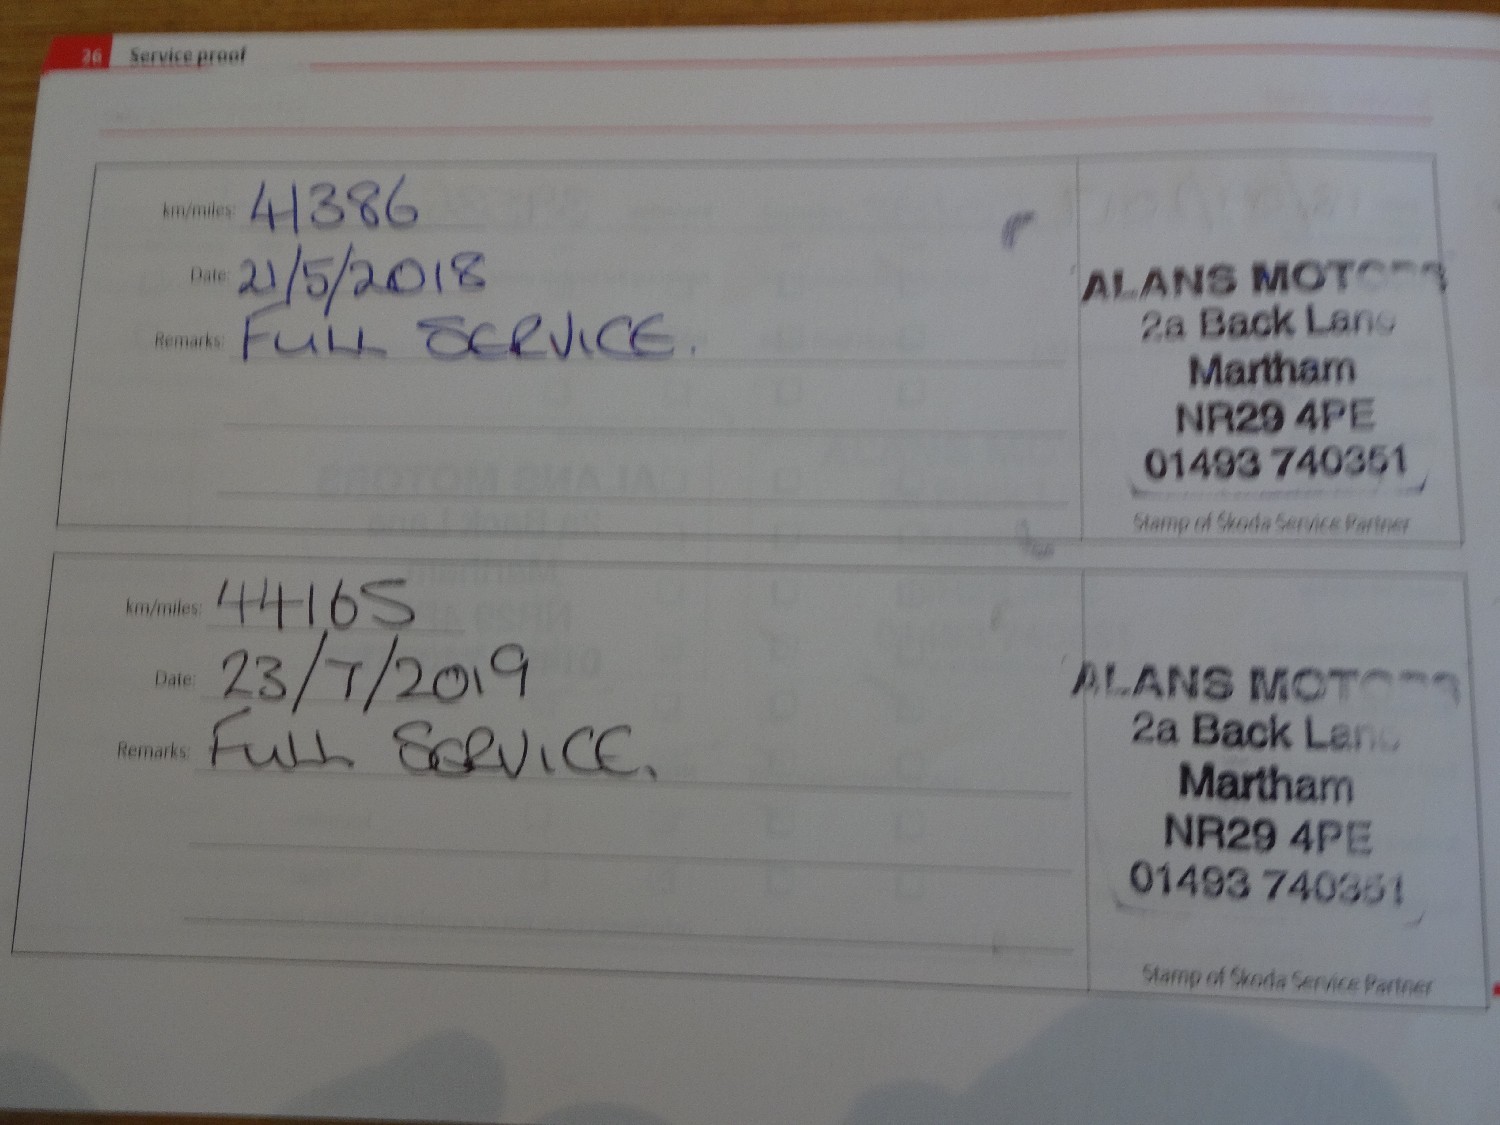 26 Service proof
km/miles: 41386
Date: 21/5/2018
Remarks: FULL SERVICE.
ALANS MOTORS
2a Back Lane
Martham
NR29 4PE
01493 740351
Stamp of Škoda Service Partner
km/miles: 44165
Date: 23/7/2019
Remarks: FULL SERVICE.
ALANS MOTORS
2a Back Lane
Martham
NR29 4PE
01493 740351
Stamp of Škoda Service Partner